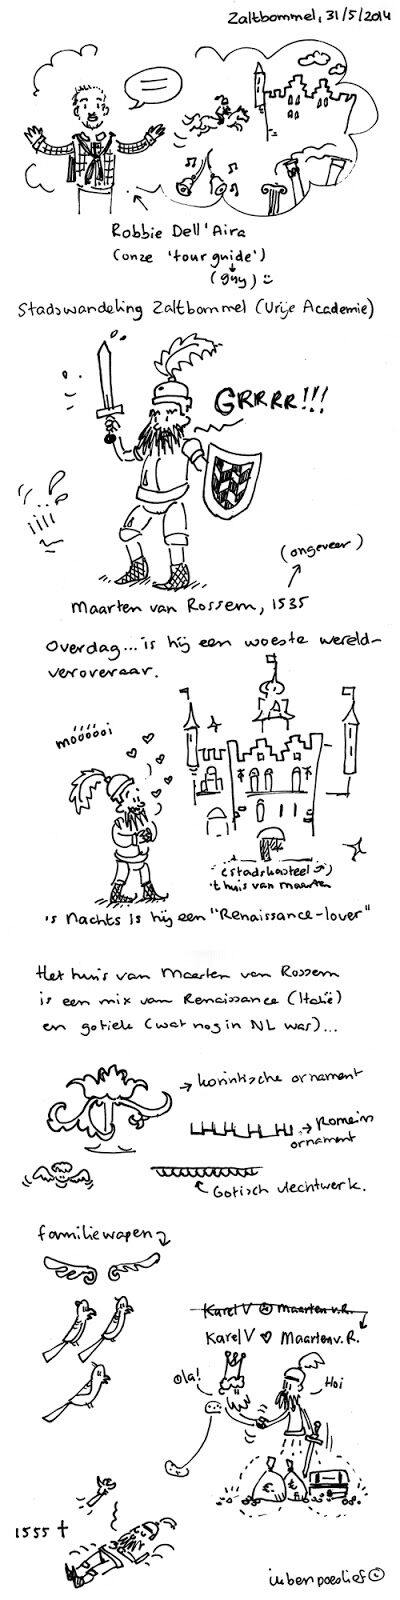 Zaltbommel, 31/5/2014
Robbie Dell'Aira
(onze 'tour guide')
(guy) :)
Stadswandeling Zaltbommel (Vrije Academie)
GRRRR!!!
(ongeveer)
Maarten van Rossem, 1535
Overdag... is hij een woeste wereld-
veroveraar.
móóóóoi
(stadskasteel)
't huis van maarten
's Nachts is hij een "Renaissance-lover"
Het huis van Maarten van Rossem
is een mix van Renaissance (Italië)
en gotiek (wat nog in NL was)...
korintische ornament
Romeins
ornament
Gotisch vlechtwerk.
familiewapen
Karel V ☹ Maarten v.R.
Karel V ♡ Maarten v.R.
Ola!
Hoi
€ €
1555 †
ikbenpoeslief ©